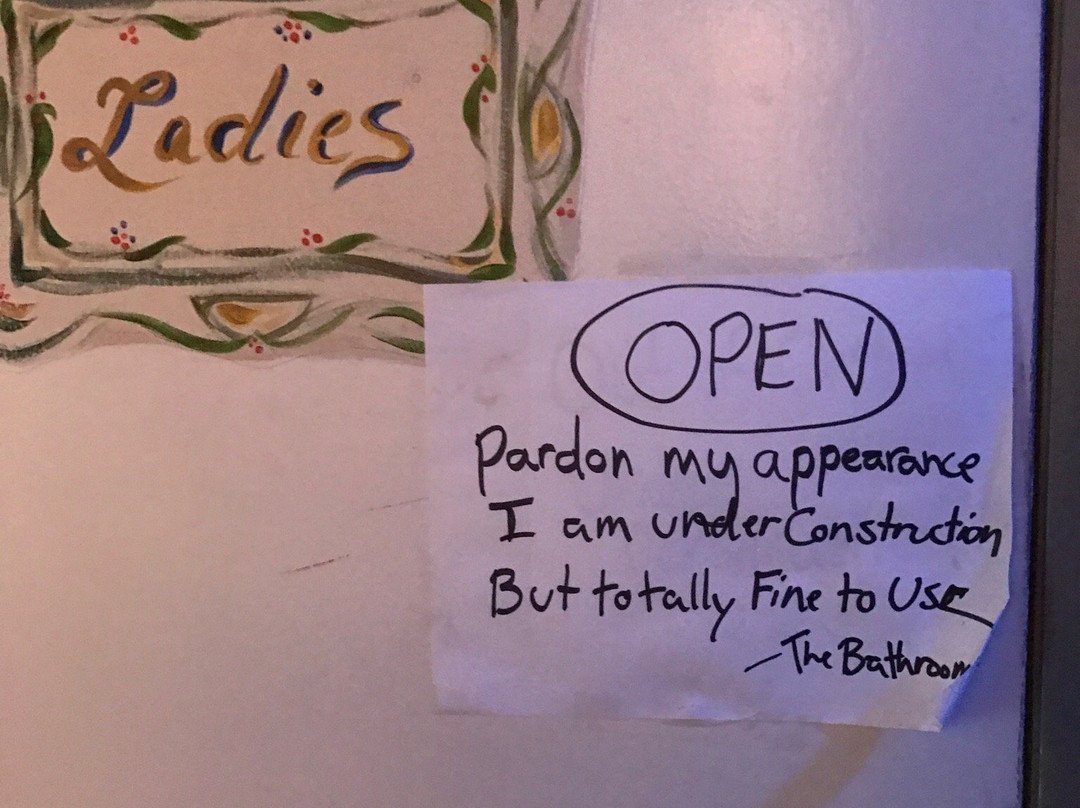 Ladies
OPEN
Pardon my appearance
I am under Construction
But totally Fine to Use
- The Bathroom